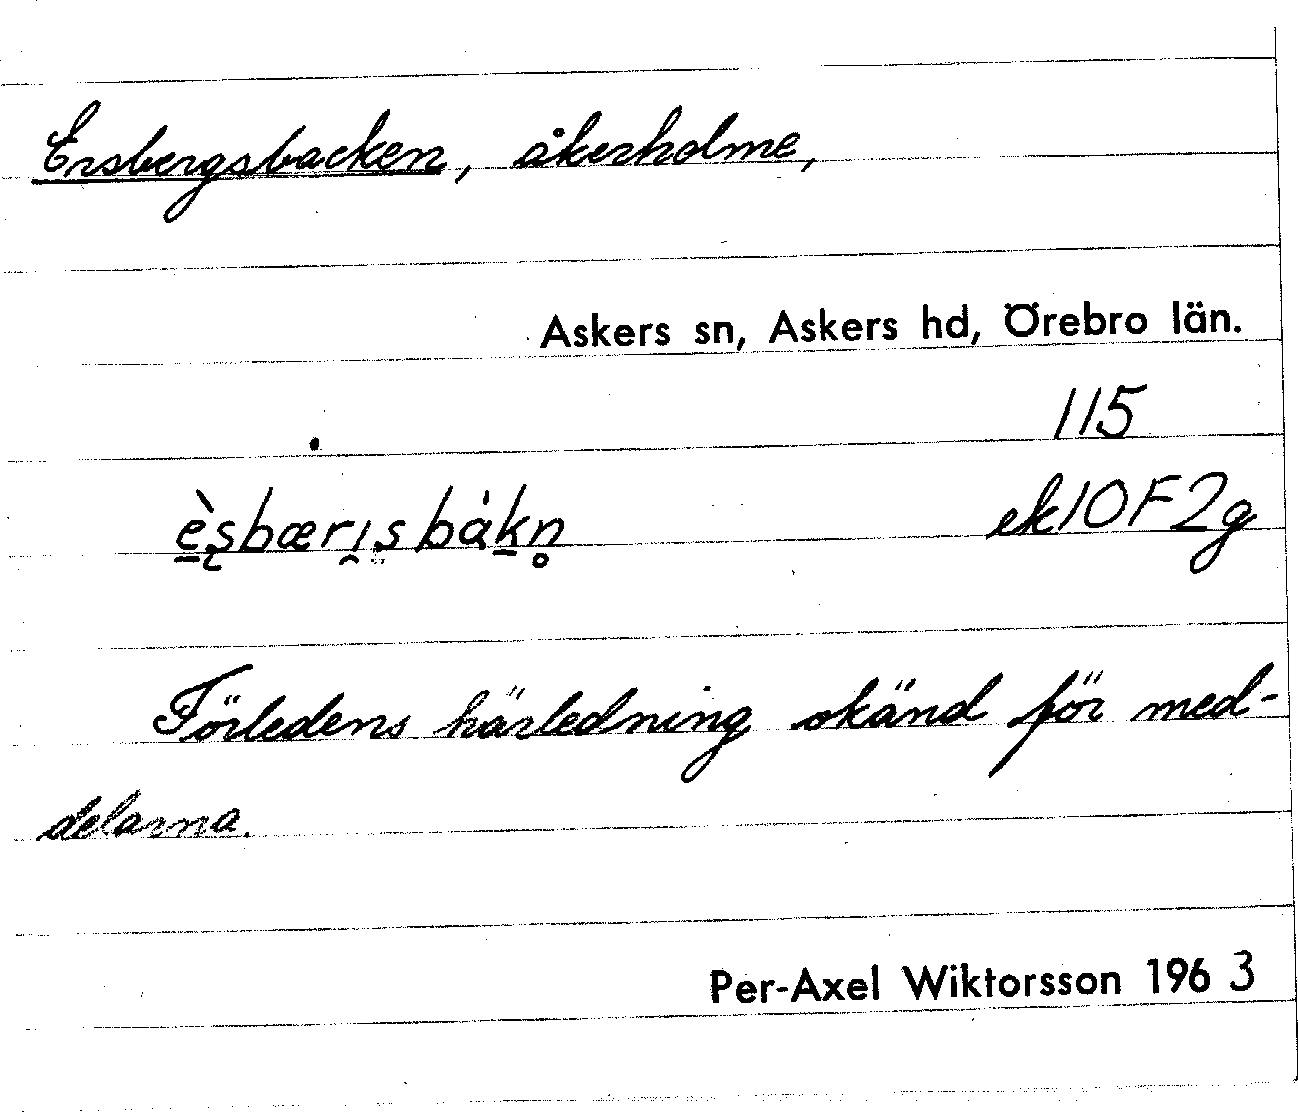 Ersbergsbacken, åkerholme,
Askers sn, Askers hd, Örebro län.
115
èsbærisbákn ek10F2g
Förledens härledning okänd för med-
delarna.
Per-Axel Wiktorsson 1963